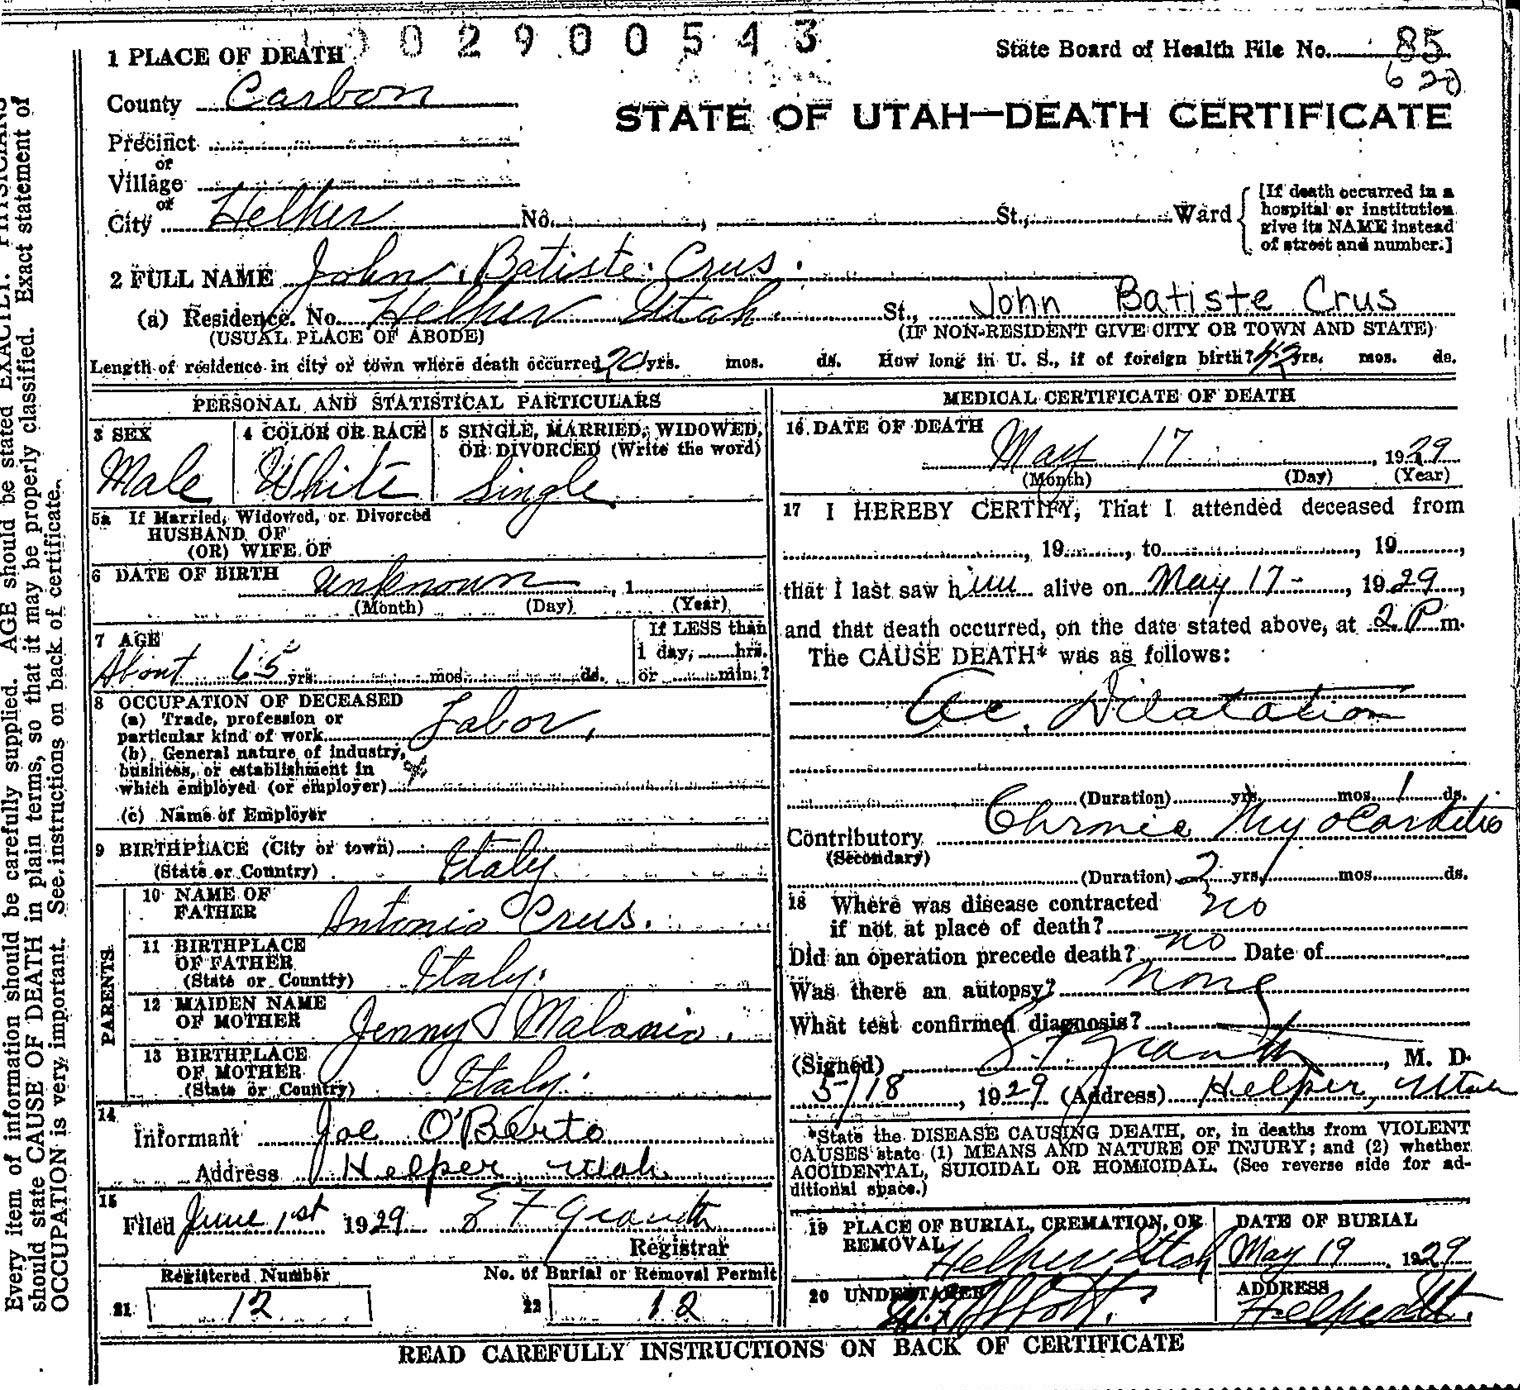 0 0 2 9 0 0 5 4 3
1 PLACE OF DEATH
State Board of Health File No. 85
620
County Carbon
STATE OF UTAH—DEATH CERTIFICATE
Precinct
or
Village
or
City Helper No. , St., Ward
[If death occurred in a
hospital or institution
give its NAME instead
of street and number.]
2 FULL NAME John Batiste Crus.
(a) Residence. No. Helper Utah. St., John Batiste Crus
(USUAL PLACE OF ABODE) (IF NON-RESIDENT GIVE CITY OR TOWN AND STATE)
Length of residence in city or town where death occurred 20 yrs. mos. ds. How long in U. S., if of foreign birth? 42 yrs. mos. ds.
PERSONAL AND STATISTICAL PARTICULARS
3 SEX
Male
4 COLOR OR RACE
White
5 SINGLE, MARRIED, WIDOWED,
OR DIVORCED (Write the word)
Single
5a If Married, Widowed, or Divorced
HUSBAND OF
(OR) WIFE OF
6 DATE OF BIRTH unknown , 1
(Month) (Day) (Year)
7 AGE
About 65 yrs. mos. ds.
If LESS than
1 day, hrs.
or min.?
8 OCCUPATION OF DECEASED
(a) Trade, profession or
particular kind of work Labor,
(b) General nature of industry,
business, or establishment in
which employed (or employer)
(c) Name of Employer
9 BIRTHPLACE (City or town)
(State or Country) Italy
PARENTS
10 NAME OF
FATHER Antonio Crus.
11 BIRTHPLACE
OF FATHER
(State or Country) Italy.
12 MAIDEN NAME
OF MOTHER Jenny Malanio.
13 BIRTHPLACE
OF MOTHER
(State or Country) Italy.
14
Informant Joe O'Berto
Address Helper, Utah
15
Filed June 1st 1929 E F Gianotti
Registrar
Registered Number No. of Burial or Removal Permit
21 12 22 12
MEDICAL CERTIFICATE OF DEATH
16 DATE OF DEATH
May 17 , 1929
(Month) (Day) (Year)
17 I HEREBY CERTIFY, That I attended deceased from
, 19 , to , 19 ,
that I last saw him alive on May 17 - , 1929,
and that death occurred, on the date stated above, at 2 P m.
The CAUSE DEATH* was as follows:
Ac. Dilatation
(Duration) yrs. mos. 1 ds.
Contributory Chronic Myocarditis
(Secondary)
(Duration) 2 yrs. mos. ds.
18 Where was disease contracted
if not at place of death? no
Did an operation precede death? no Date of
Was there an autopsy? none
What test confirmed diagnosis?
(Signed) , M. D.
5/18 , 1929 (Address) Helper, Utah
*State the DISEASE CAUSING DEATH, or, in deaths from VIOLENT
CAUSES state (1) MEANS AND NATURE OF INJURY; and (2) whether
ACCIDENTAL, SUICIDAL OR HOMICIDAL. (See reverse side for ad-
ditional space.)
19 PLACE OF BURIAL, CREMATION, OR
REMOVAL Helper Utah
DATE OF BURIAL
May 19 1929
20 UNDERTAKER
ADDRESS
Helper Ut.
READ CAREFULLY INSTRUCTIONS ON BACK OF CERTIFICATE
Every item of information should be carefully supplied. AGE should be stated EXACTLY. PHYSICIANS
should state CAUSE OF DEATH in plain terms, so that it may be properly classified. Exact statement of
OCCUPATION is very important. See instructions on back of certificate.